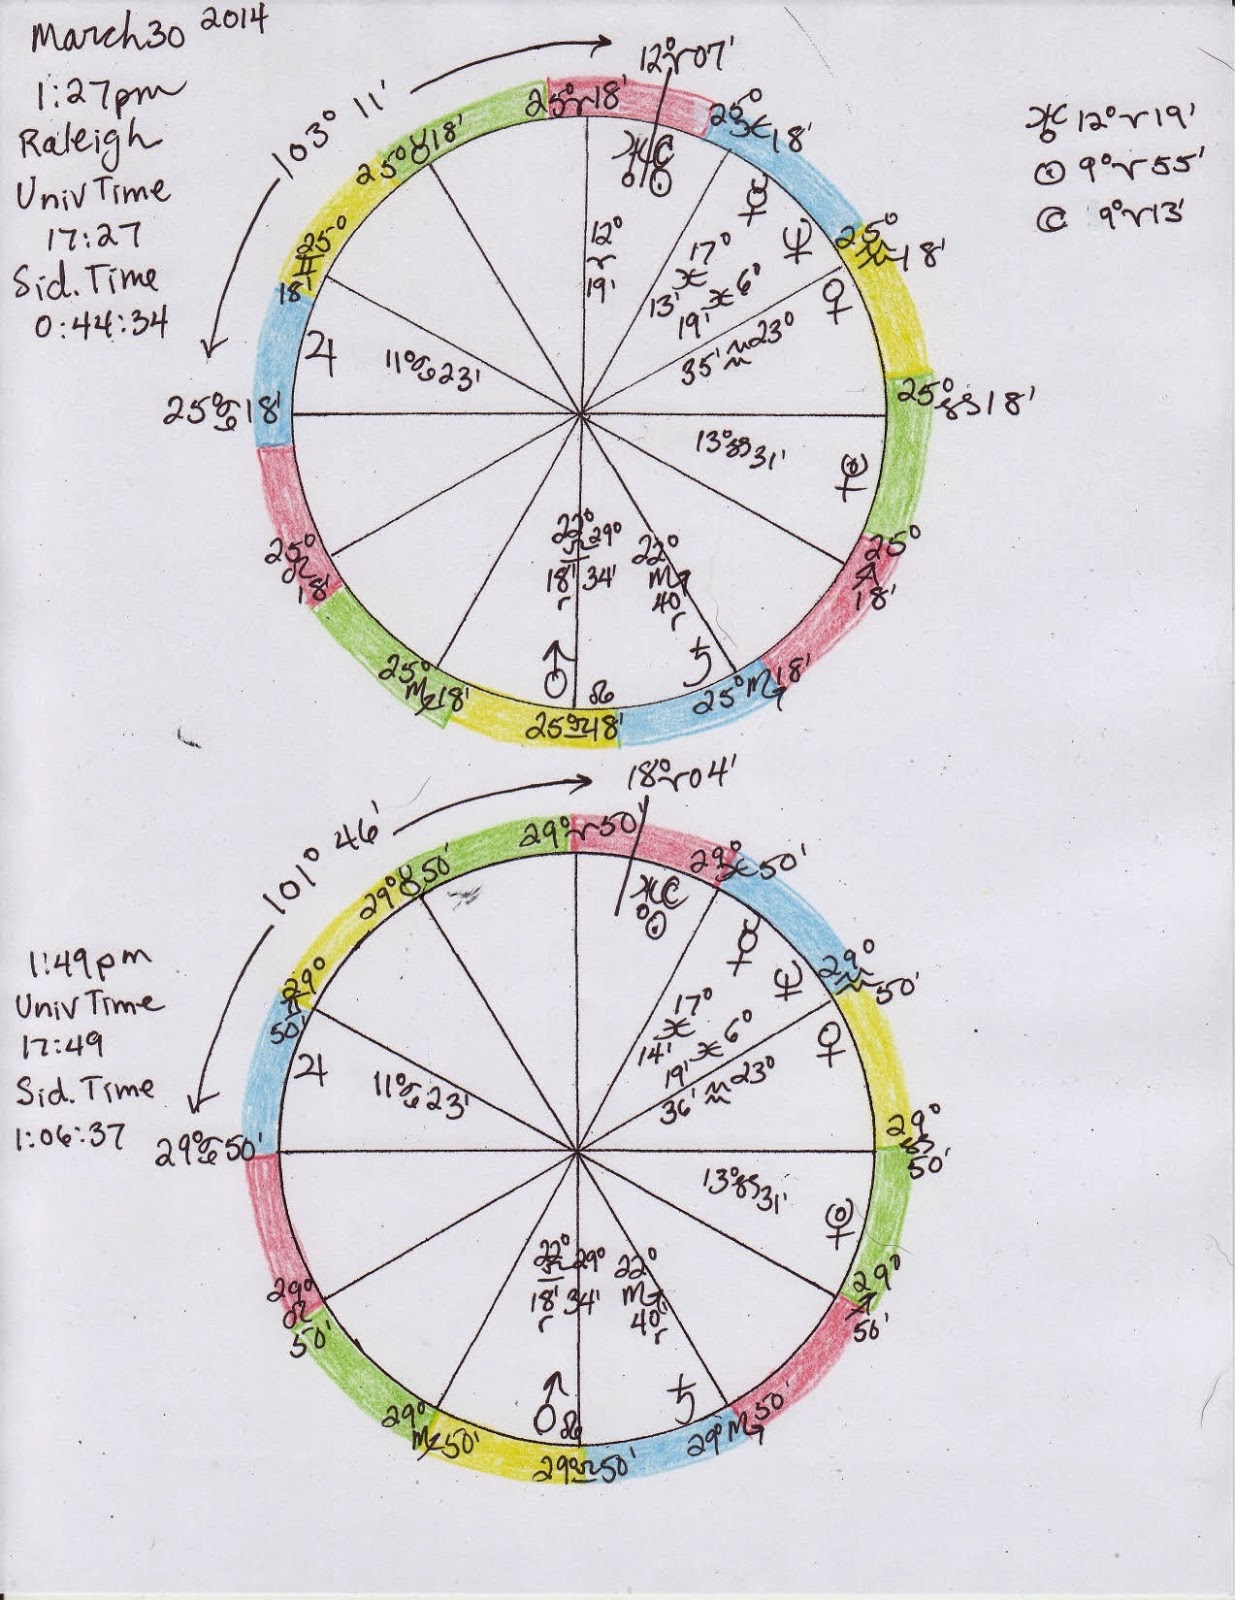 March 30 2014
1:27pm
Raleigh
Univ Time
17:27
Sid. Time
0:44:34
103° 11'
12°♈07'
♅ 12°♈19'
☉ 9°♈55'
☾ 9°♈13'
25°♈18'
25°♓18'
25°♒18'
25°♑18'
25°♐18'
25°♏18'
25°♎18'
25°♍18'
25°♌18'
25°♋18'
25°♊18'
25°♉18'
♅☾
☉
12°♈19'
☿
17°♓13'
♆
6°♓19'
♀
23°♒35'
13°♑31'
♃
11°♋23'
♂
22°♎18' r
☊
29°34'
♄
22°♏40' r
101° 46'
18°♈04'
1:49pm
Univ Time
17:49
Sid. Time
1:06:37
29°♈50'
29°♓50'
29°♒50'
29°♑50'
29°♐50'
29°♏50'
29°♎50'
29°♍50'
29°♌50'
29°♋50'
29°♊50'
29°♉50'
♅☾
☉
☿
17°♓14'
♆
6°♓19'
♀
23°♒36'
13°♑31'
♃
11°♋23'
♂
22°♎18' r
☊
29°34'
♄
22°♏40' r